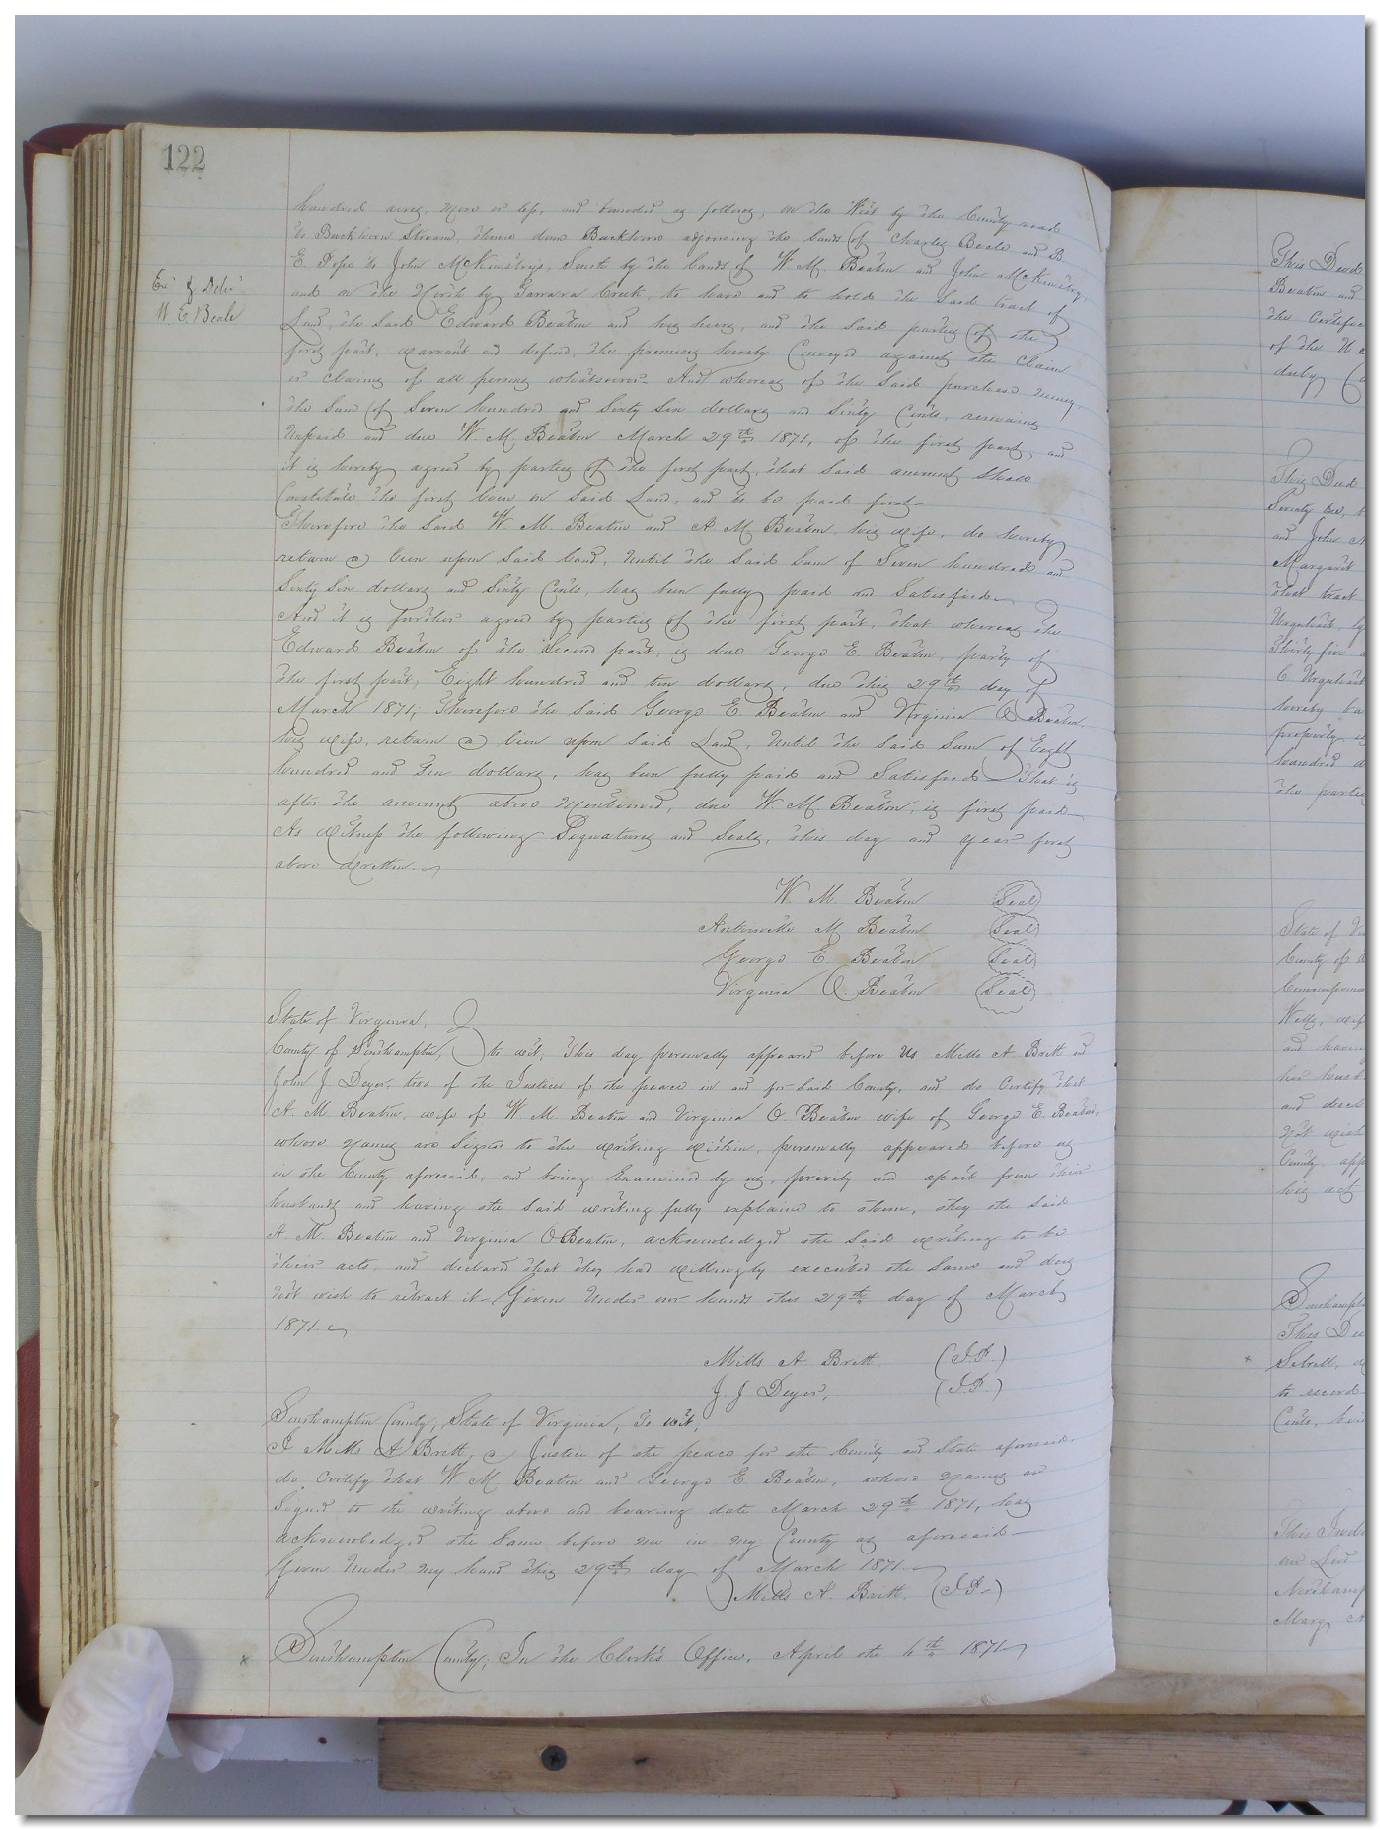 122
hundred acres, more or less, and bounded as follows, on the West by the County road
to Buckhorn Stream, thence down Buckhorn adjoining the lands of Charles Beale and B.
E. Pope to John McKinstrys, South by the lands of W. M. Beaton and John McKinstry,
Ex. & Deld.
W. E. Beale
and on the North by Creek, to have and to hold the said tract of
Land, the said Edward Beaton and his heirs, and the said parties of the
first part, warrant and defend, the premises hereby Conveyed against the Claim
or claims of all persons whatsoever. And whereas of the said purchase money,
the Sum of Seven hundred and Sixty Six dollars and Sixty Cents, remains
Unpaid and due W. M. Beaton March 29th 1871, of the first part, and
it is hereby agreed by parties of the first part, that said amount shall
Constitute the first lien on said Land, and to be paid first—
Therefore the said W. M. Beaton and A. M. Beaton his wife, do hereby
retain a lien upon said land, Until the said Sum of Seven hundred and
Sixty Six dollars and Sixty Cents, has been fully paid and Satisfied.
And it is further agreed by parties of the first part, that whereas the
Edward Beaton of the Second part, is due George E. Beaton, party of
the first part, Eight hundred and ten dollars, due this 29th day of
March 1871, Therefore the said George E. Beaton and Virginia O. Beaton
his wife, retain a lien upon said Land, Until the said Sum of Eight
hundred and Ten dollars, has been fully paid and Satisfied—That is
after the amount above mentioned, due W. M. Beaton, is first paid—
As witness the following Signatures and Seals, this day and year first
above written.
W. M. Beaton (Seal)
M. Beaton (Seal)
George E. Beaton (Seal)
Virginia O. Beaton (Seal)
State of Virginia,
County of Southampton, to wit, This day personally appeared before Us Mills A. Britt and
John J. Deyer, two of the Justices of the peace in and for said County, and do Certify that
A. M. Beaton, wife of W. M. Beaton and Virginia O. Beaton wife of George E. Beaton,
whose names are Signed to the writing within, personally appeared before us
in the County aforesaid, and being Examined by us, privily and apart from their
husbands and having the said writing fully explained to them, they the said
A. M. Beaton and Virginia O Beaton, acknowledged the said writing to be
their acts, and declared that they had willingly executed the same and does
not wish to retract it—Given Under our hands this 29th day of March
1871.
Mills A. Britt (J.P.)
J. J. Deyer, (J.P.)
Southampton County, State of Virginia, To wit,
I Mills A Britt, a Justice of the peace for the County and State aforesaid
do certify that W M Beaton and George E. Beaton, whose names are
Signed to the writing above and bearing date March 29th 1871, has
acknowledged the same before me in my County as aforesaid—
Given Under my hand this 29th day of March 1871.
Mills A. Britt. (J.P.)
Southampton County, In the Clerk's Office, April the 4th 1871
This Deed
Beaton and
the Certifi
of the
duly
This Deed
and John
Margaret
that tract
Thirty five
hereby
property
hundred
the parties
State of
County of
and having
County, app
his act
Southampt
This De
to record
Cents,